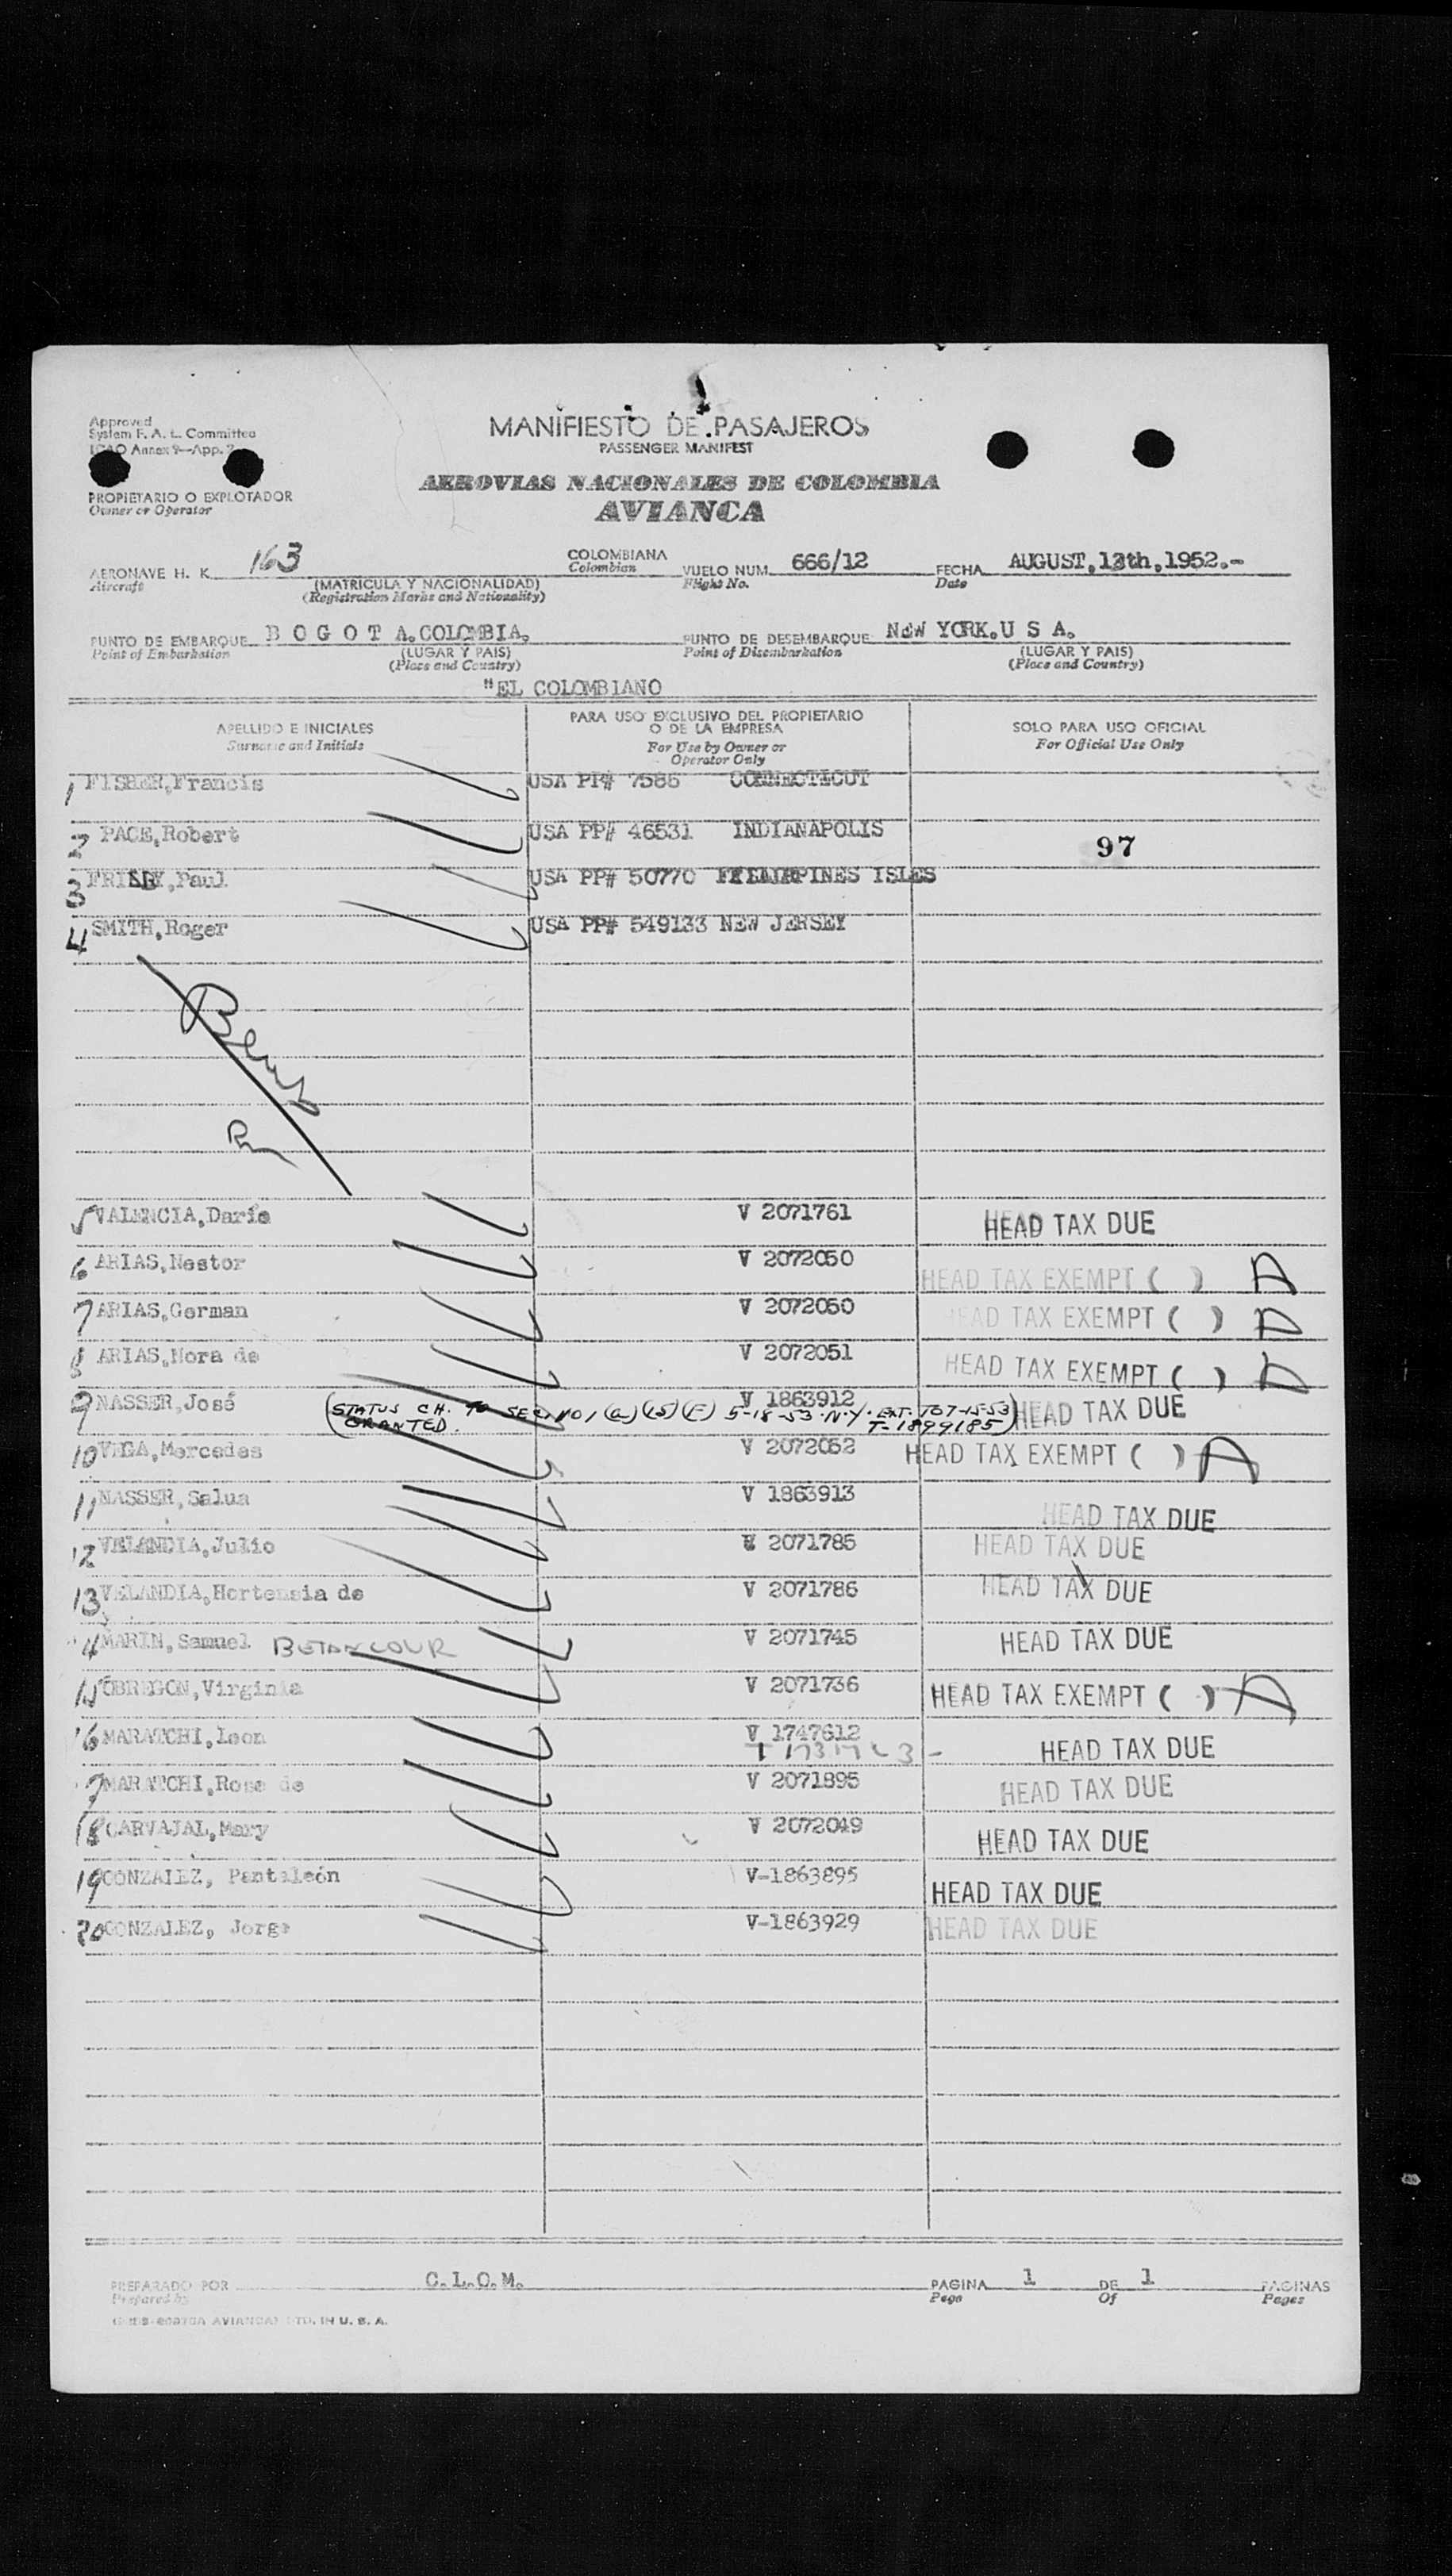 Approved
System F. A. L. Committee
ICAO Annex 9—App. 2
MANIFIESTO DE PASAJEROS
PASSENGER MANIFEST
AEROVIAS NACIONALES DE COLOMBIA
AVIANCA
PROPIETARIO O EXPLOTADOR
Owner or Operator
AERONAVE H. K. 163 COLOMBIANA VUELO NUM. 666/12 FECHA AUGUST, 12th, 1952.-
Aircraft Colombian Flight No. Date
(MATRICULA Y NACIONALIDAD)
(Registration Marks and Nationality)
PUNTO DE EMBARQUE B O G O T A. COLOMBIA. PUNTO DE DESEMBARQUE NEW YORK. U S A.
Point of Embarkation (LUGAR Y PAIS) Point of Disembarkation (LUGAR Y PAIS)
(Place and Country) (Place and Country)
"EL COLOMBIANO
APELLIDO E INICIALES PARA USO EXCLUSIVO DEL PROPIETARIO O DE LA EMPRESA SOLO PARA USO OFICIAL
Surname and Initials For Use by Owner or Operator Only For Official Use Only
1 FISHER, Francis USA PP# 7585 CONNECTICUT
2 PACE, Robert USA PP# 46531 INDIANAPOLIS
97
3 Paul USA PP# 50770 ISLES
4 SMITH, Roger USA PP# 549133 NEW JERSEY
5 VALENCIA, Dario V 2071761 HEAD TAX DUE
6 ARIAS, Nestor V 2072050 HEAD TAX EXEMPT ( ) A
7 ARIAS, German V 2072050 HEAD TAX EXEMPT ( ) A
8 ARIAS, Nora de V 2072051 HEAD TAX EXEMPT ( ) A
9 NASSER, José V 1863912 HEAD TAX DUE
(STATUS CH. TO SEC. 101 (a) (15) (F) 5-18-53. N.Y. EXT. TO 7-15-53
GRANTED. T-1899185)
10 VEGA, Mercedes V 2072052 HEAD TAX EXEMPT ( ) A
11 NASSER, Salua V 1863913 HEAD TAX DUE
12 VELANDIA, Julio V 2071785 HEAD TAX DUE
13 VELANDIA, Hortensia de V 2071786 HEAD TAX DUE
14 MARIN, Samuel BETANCOUR V 2071745 HEAD TAX DUE
15 OBREGON, Virginia V 2071736 HEAD TAX EXEMPT ( ) A
16 MARATCHI, Leon V 1747612 HEAD TAX DUE
17 MARATCHI, Rosa de V 2071895 HEAD TAX DUE
18 CARVAJAL, Mary V 2072049 HEAD TAX DUE
19 GONZALEZ, Pantaleón V-1863895 HEAD TAX DUE
20 GONZALEZ, Jorge V-1863929 HEAD TAX DUE
PREPARADO POR C.L.O.M. PAGINA 1 DE 1 PAGINAS
Prepared by Page Of Pages
AVIANCA LTD. IN U. S. A.